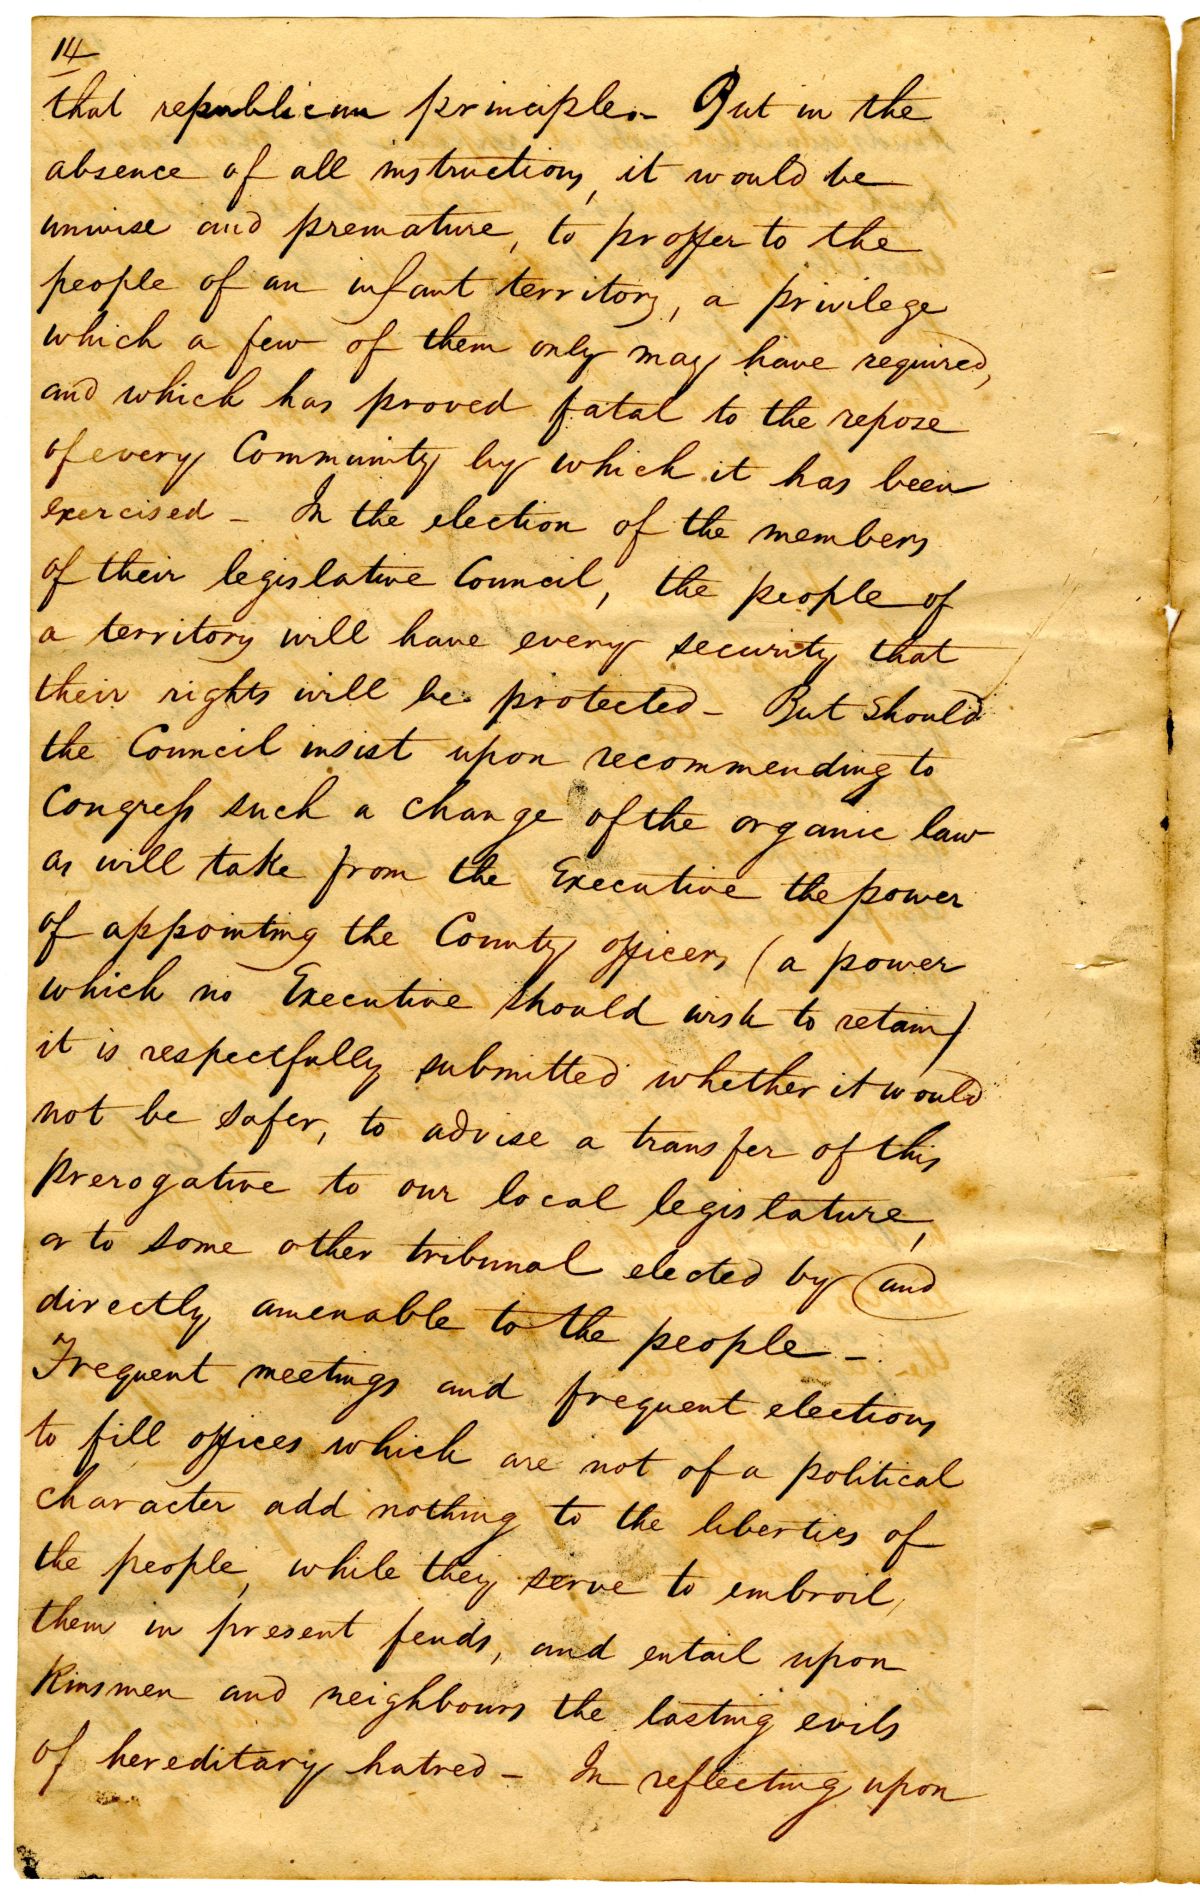 14
that republican principle. – But in the
absence of all instructions, it would be
unwise and premature, to proffer to the
people of an infant territory, a privilege
which a few of them only may have required,
and which has proved fatal to the repose
of every Community by which it has been
exercised – In the election of the members
of their legislative Council, the people of
a territory will have every security that
their rights will be protected – But should
the Council insist upon recommending to
Congress such a change of the organic law
as will take from the Executive the power
of appointing the County officers, (a power
which no Executive should wish to retain)
it is respectfully submitted whether it would
not be safer, to advise a transfer of this
prerogative to our local legislature,
or to some other tribunal elected by and
directly amenable to the people –
Frequent meetings and frequent elections
to fill offices which are not of a political
character add nothing to the liberties of
the people, while they serve to embroil
them in present feuds, and entail upon
Kinsmen and neighbours the lasting evils
of hereditary hatred – In reflecting upon